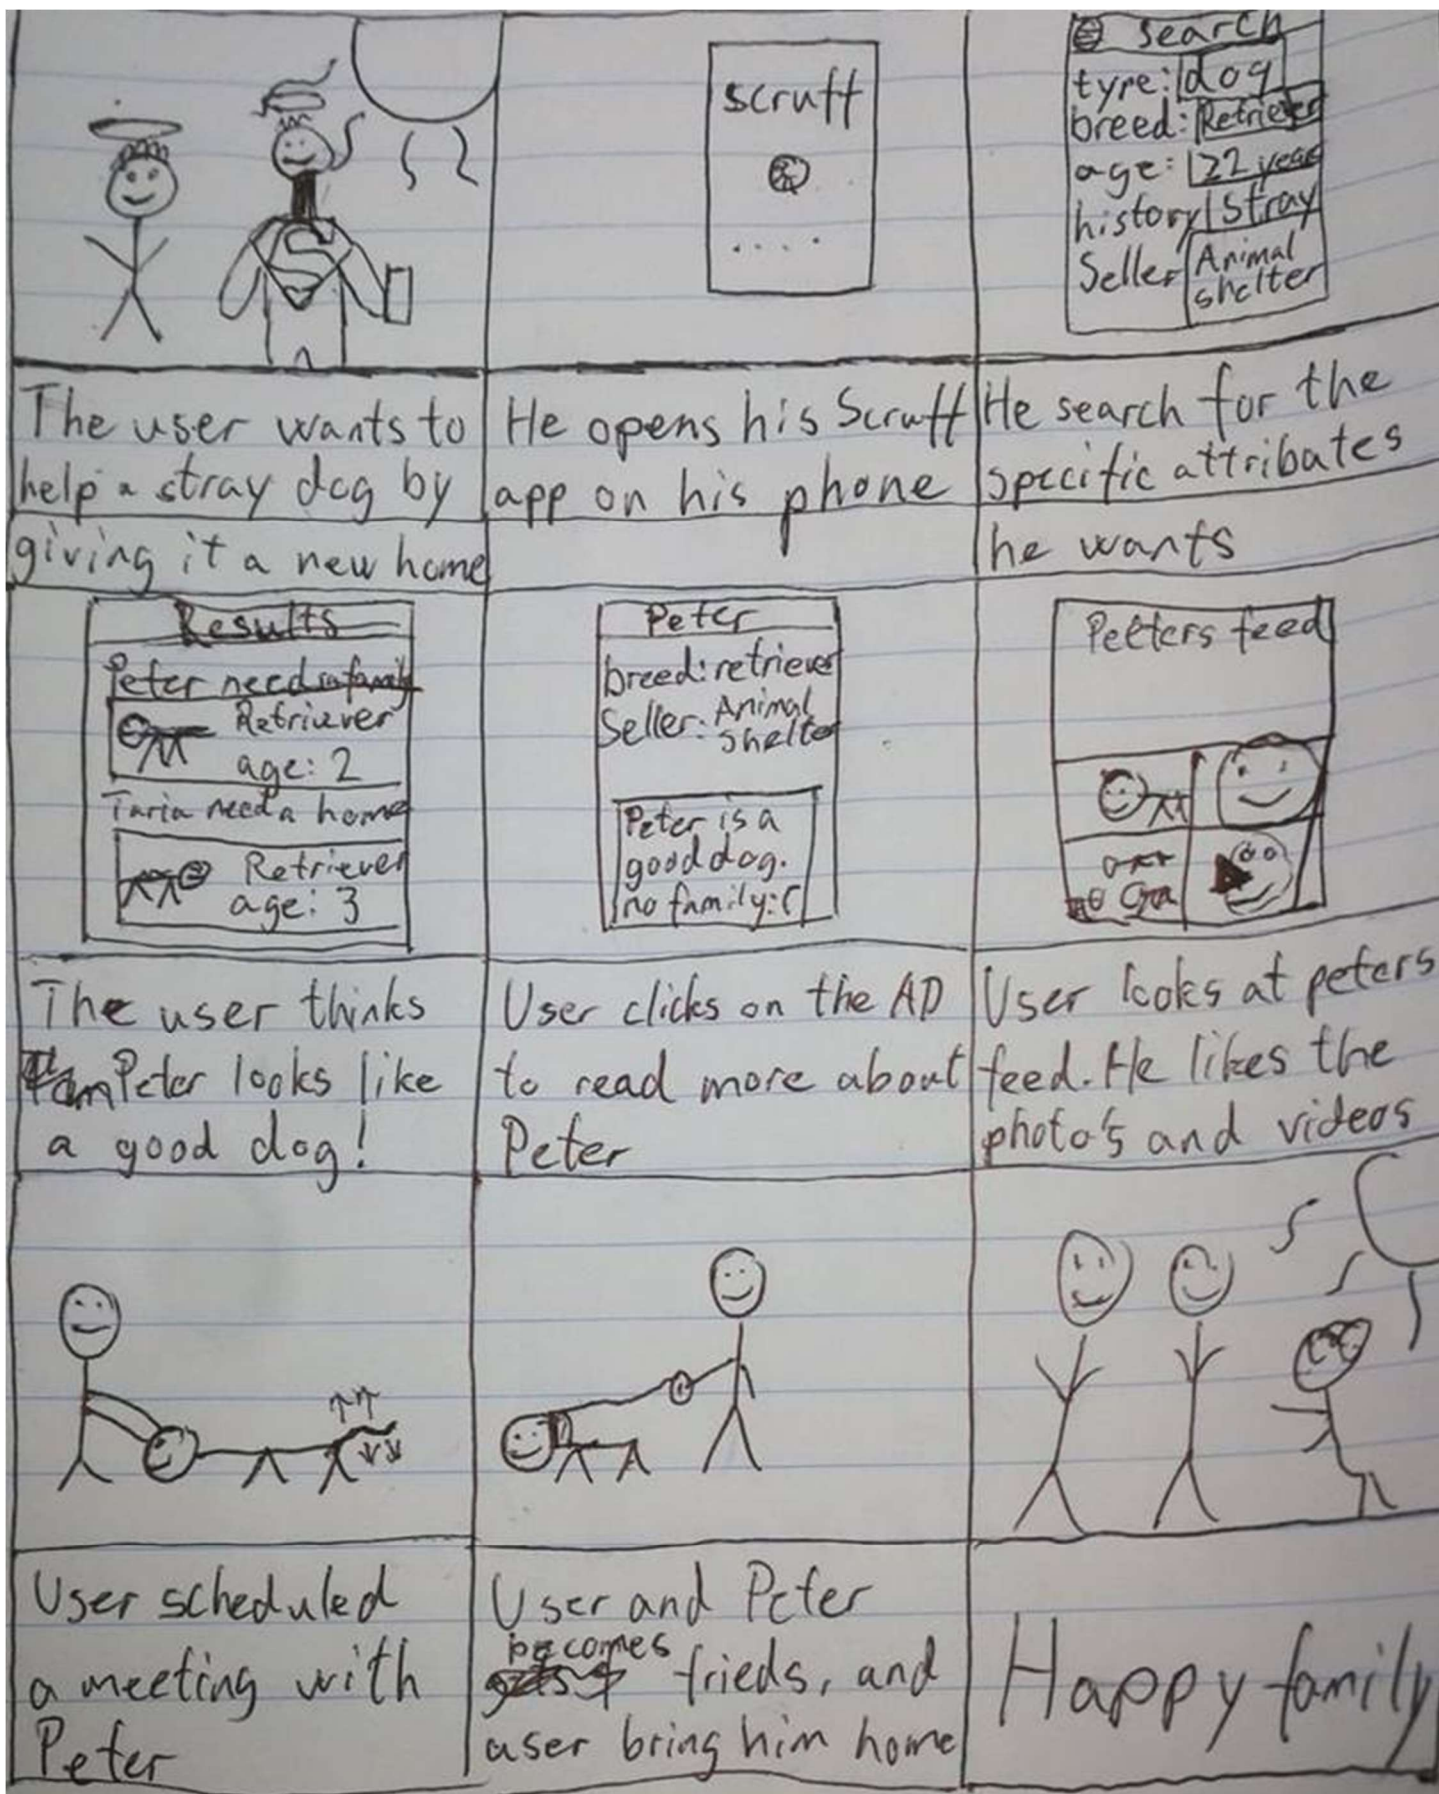 scruff
search
type: dog
breed: Retriever
age: ≥2 years
history Stray
Seller Animal
shelter
The user wants to
help a stray dog by
giving it a new home
He opens his Scruff
app on his phone
He search for the
specific attributes
he wants
Results
Peter need a family
Retriever
age: 2
need a home
Retriever
age: 3
Peter
breed: retriever
Seller: Animal
shelter
Peter is a
good dog.
no family:(
Peeters feed
The user thinks
Peter looks like
a good dog!
User clicks on the AD
to read more about
Peter
User looks at peters
feed. He likes the
photo's and videos
User scheduled
a meeting with
Peter
User and Peter
becomes frieds, and
user bring him home
Happy family